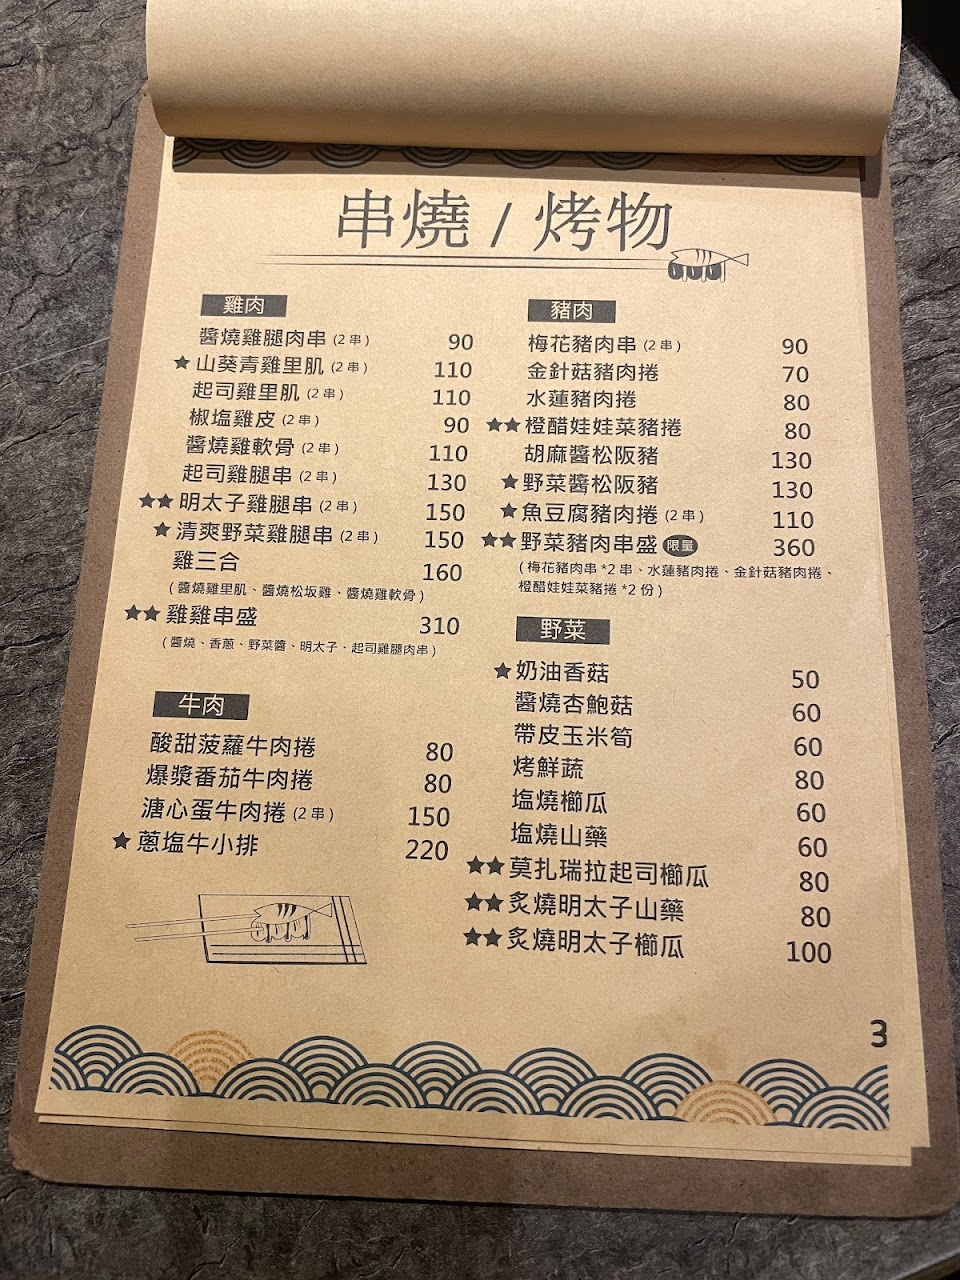 串燒 / 烤物
雞肉
醬燒雞腿肉串 (2 串) 90
★ 山葵青雞里肌 (2 串) 110
起司雞里肌 (2 串) 110
椒塩雞皮 (2 串) 90
醬燒雞軟骨 (2 串) 110
起司雞腿串 (2 串) 130
★★ 明太子雞腿串 (2 串) 150
★ 清爽野菜雞腿串 (2 串) 150
雞三合 160
(醬燒雞里肌、醬燒松坂雞、醬燒雞軟骨)
★★ 雞雞串盛 310
(醬燒、香蔥、野菜醬、明太子、起司雞腿肉串)
牛肉
酸甜菠蘿牛肉捲 80
爆漿番茄牛肉捲 80
溏心蛋牛肉捲 (2 串) 150
★ 蔥塩牛小排 220
豬肉
梅花豬肉串 (2 串) 90
金針菇豬肉捲 70
水蓮豬肉捲 80
★★ 橙醋娃娃菜豬捲 80
胡麻醬松阪豬 130
★ 野菜醬松阪豬 130
★ 魚豆腐豬肉捲 (2 串) 110
★★ 野菜豬肉串盛 限量 360
(梅花豬肉串 *2 串、水蓮豬肉捲、金針菇豬肉捲、
橙醋娃娃菜豬捲 *2 份)
野菜
★ 奶油香菇 50
醬燒杏鮑菇 60
帶皮玉米筍 60
烤鮮蔬 80
塩燒櫛瓜 60
塩燒山藥 60
★★ 莫扎瑞拉起司櫛瓜 80
★★ 炙燒明太子山藥 80
★★ 炙燒明太子櫛瓜 100
3